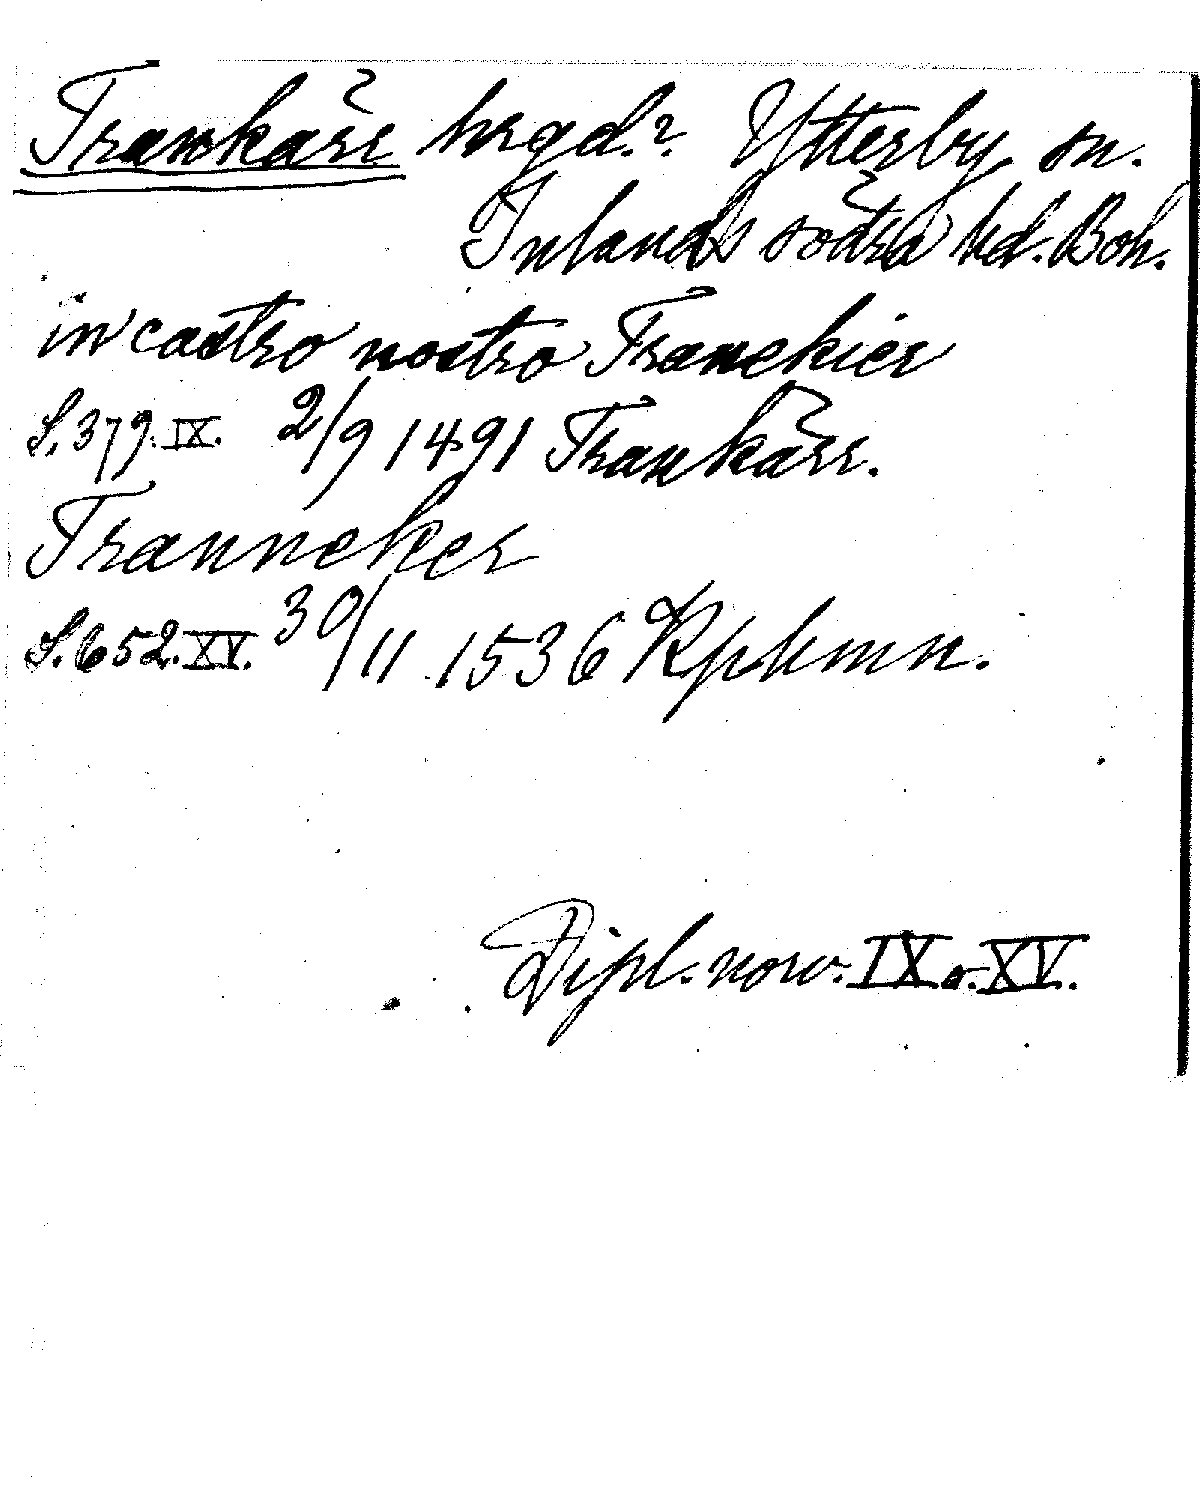 Trankärr hrgd.? Ytterby sn.
Inlands södra hd. Boh.
in castro nostro Tranekier
S. 379. IX. 2/9 1491 Trankärr.
Tranneker
S. 652. XV. 30/11 1536 Kphmn.
Dipl. norv. IX o. XV.